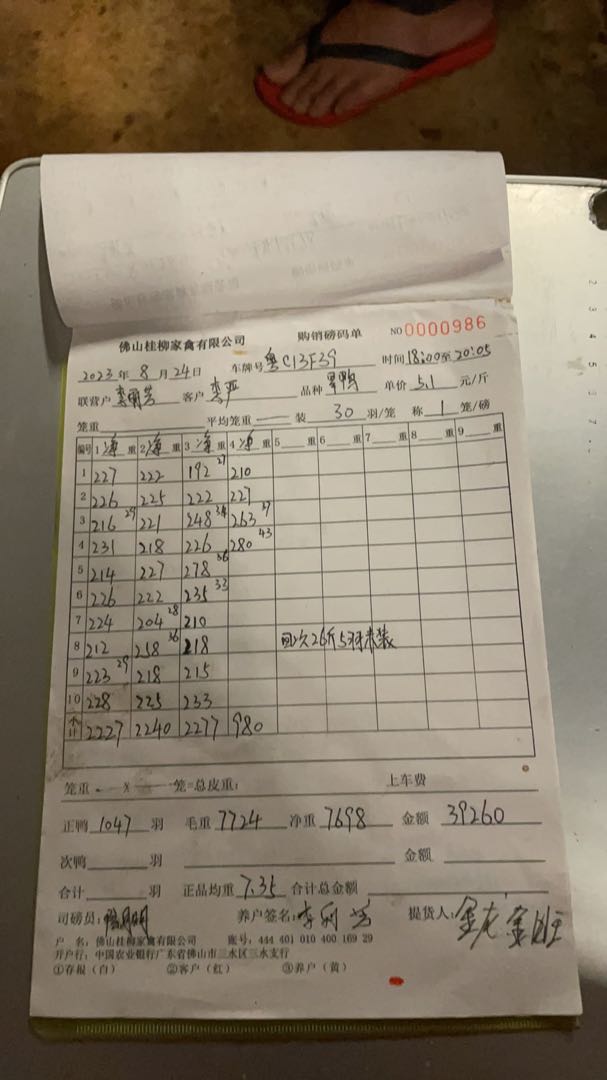 佛山桂柳家禽有限公司 购销磅码单 NO 0000986
2023年 8月 24日 车牌号 粤C13F39 时间 18:00至20:05
联营户 李丽芳 客户 李严 品种 旱鸭 单价 5.1 元/斤
笼重 平均笼重 装 30 羽/笼 称 1 笼/磅
编号 1 净 重 2 净 重 3 净 重 4 净 重 5 重 6 重 7 重 8 重 9 重
1 227 222 192 27 210
2 226 225 222 227
3 216 29 221 248 34 263 37
4 231 218 226 280 43
5 214 227 278 36
6 226 222 235 33
7 224 204 28 210
8 212 258 36 218 回次26斤5羽未装
9 223 29 218 215
10 228 225 233
小计 2227 2240 2277 980
笼重 X 笼=总皮重: 上车费
正鸭 1047 羽 毛重 7724 净重 7698 金额 39260
次鸭 羽 金额
合计 羽 正品均重 7.35 合计总金额
司磅员: 养户签名: 提货人:
户 名: 佛山桂柳家禽有限公司 账号: 444 401 010 400 169 29
开户行: 中国农业银行广东省佛山市三水区三水支行
①存根(白) ②客户(红) ③养户(黄)